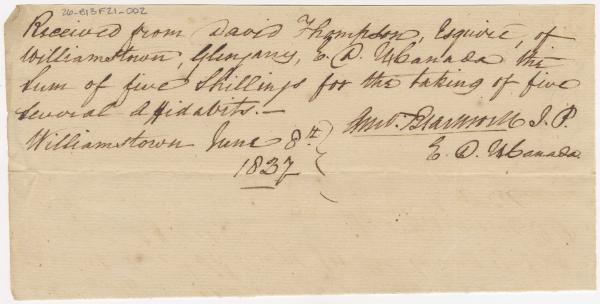 26-B13F21-002
Received from David Thompson, Esquire, of
Williamstown, Glengary, E. D. U Canada the
Sum of five Shillings for the taking of five
several affidavits.—
Williamstown June 8th
J. P.
1837
E. D. U Canada.